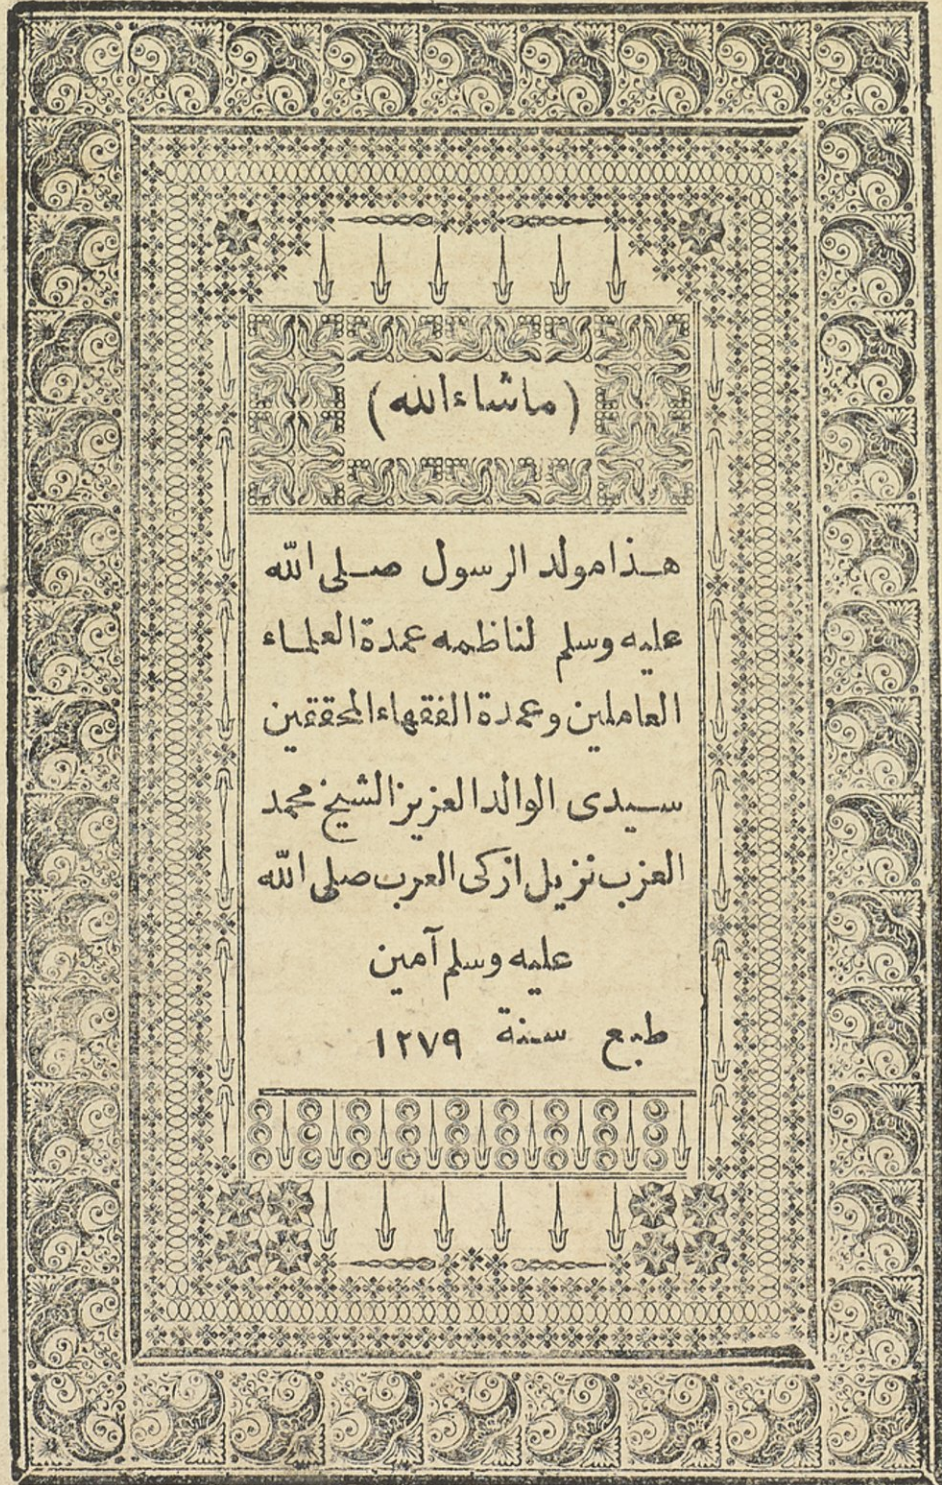 (ماشاء الله)
هذا مولد الرسول صلى الله
عليه وسلم لناظمه عمدة العلماء
العاملين وعمدة الفقهاء المحققين
سيدى الوالد العزيز الشيخ محمد
العزب نزيل ازكى العرب صلى الله
عليه وسلم آمين
طبع سنة ١٢٧٩